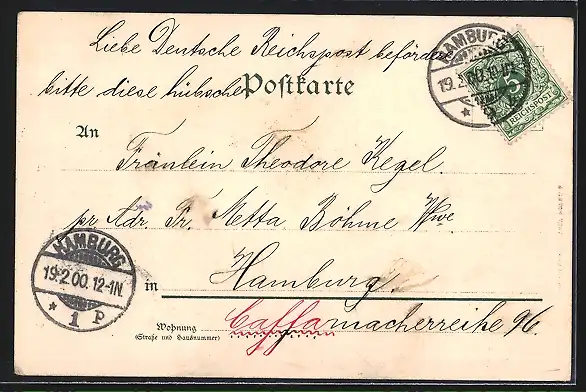 Liebe Deutsche Reichspost befördere
bitte diese hübsche Postkarte
HAMBURG
19.2.00.
5
REICHSPOST
An
Fräulein Theodore Kegel.
pr Adr. Fr. Metta Böhme Wwe
HAMBURG
19.2.00.12-1N.
* 1 P
in Hamburg.
Wohnung
(Straße und Hausnummer)
Caffamacherreihe 96.